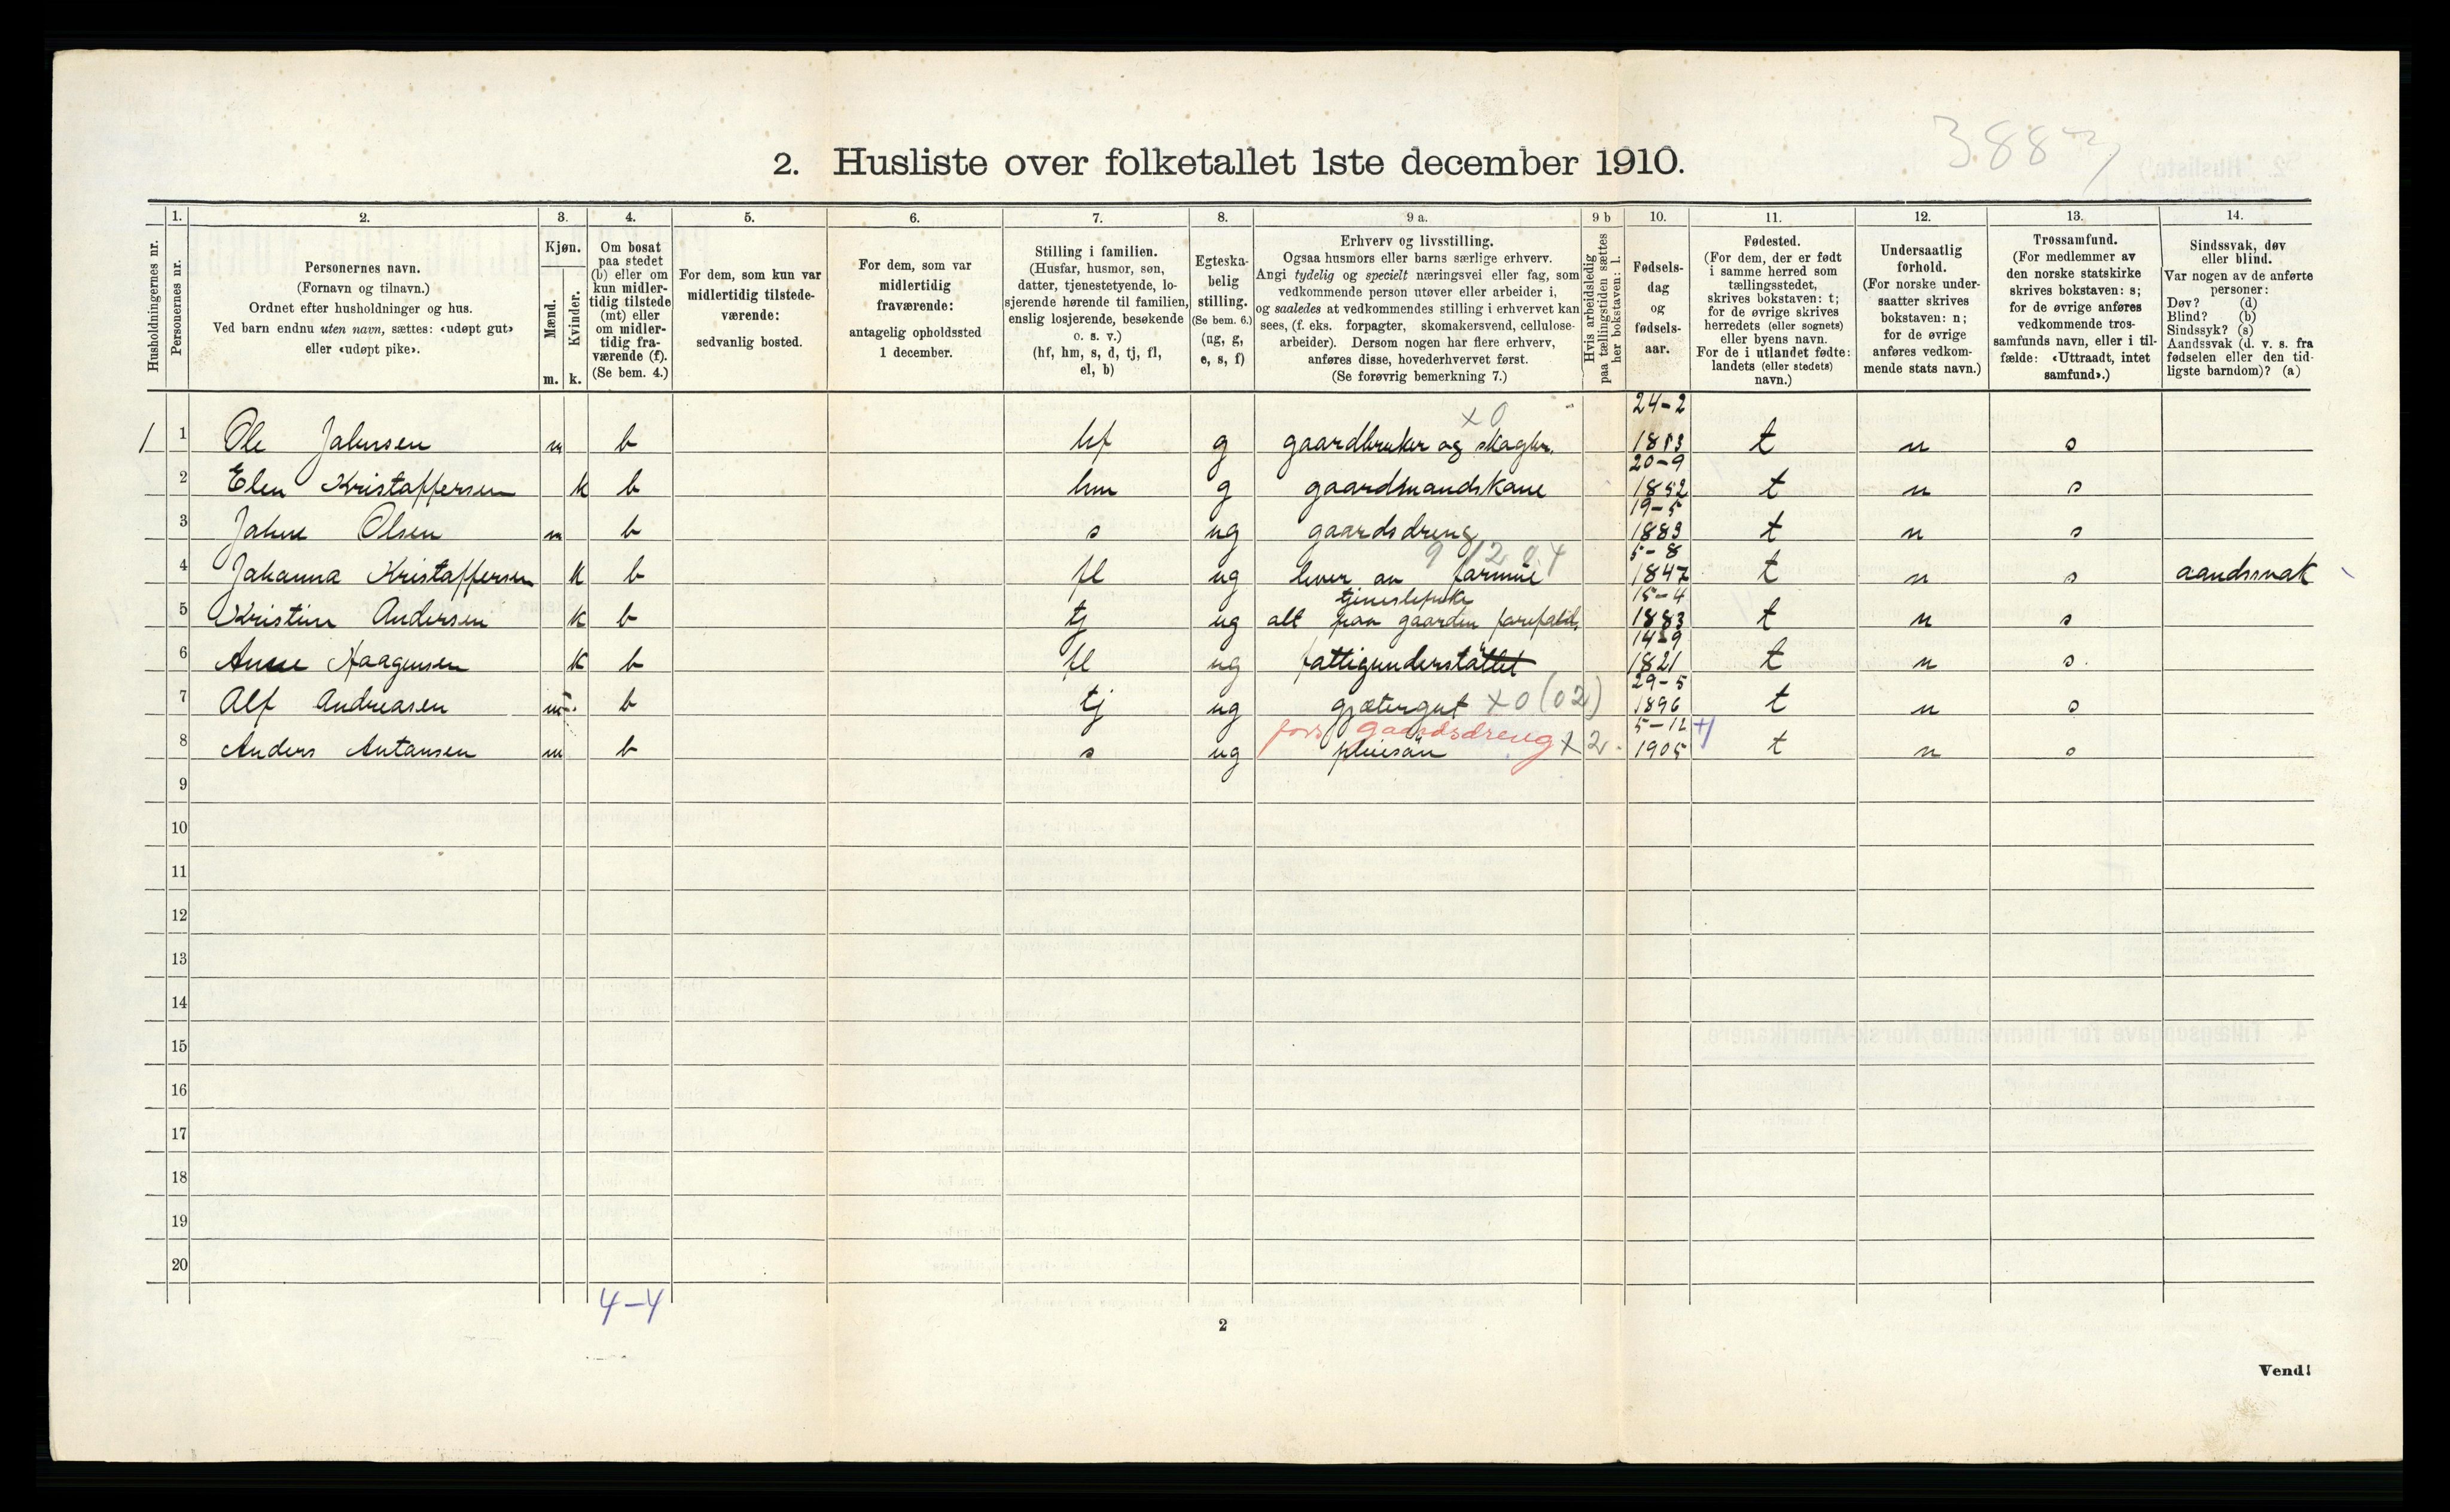 3887
2. Husliste over folketallet 1ste december 1910.
Husholdningernes nr.
1.
Personernes nr.
2.
Personernes navn.
(Fornavn og tilnavn.)
Ordnet efter husholdninger og hus.
Ved barn endnu uten navn, sættes: «udøpt gut»
eller «udøpt pike».
3.
Kjøn.
Mænd.
Kvinder.
m. k.
4.
Om bosat
paa stedet
(b) eller om
kun midler-
tidig tilstede
(mt) eller
om midler-
tidig fra-
værende (f).
(Se bem. 4.)
5.
For dem, som kun var
midlertidig tilstede-
værende:
sedvanlig bosted.
6.
For dem, som var
midlertidig
fraværende:
antagelig opholdssted
1 december.
7.
Stilling i familien.
(Husfar, husmor, søn,
datter, tjenestetyende, lo-
sjerende hørende til familien,
enslig losjerende, besøkende
o. s. v.)
(hf, hm, s, d, tj, fl,
el, b)
8.
Egteska-
belig
stilling.
(Se bem. 6.)
(ug, g,
e, s, f)
9 a.
Erhverv og livsstilling.
Ogsaa husmors eller barns særlige erhverv.
Angi tydelig og specielt næringsvei eller fag, som
vedkommende person utøver eller arbeider i,
og saaledes at vedkommendes stilling i erhvervet kan
sees, (f. eks. forpagter, skomakersvend, cellulose-
arbeider). Dersom nogen har flere erhverv,
anføres disse, hovederhvervet først.
(Se forøvrig bemerkning 7.)
9 b
Hvis arbeidsledig
paa tællingstiden sættes
her bokstaven: l.
10.
Fødsels-
dag
og
fødsels-
aar.
11.
Fødested.
(For dem, der er født
i samme herred som
tællingsstedet,
skrives bokstaven: t;
for de øvrige skrives
herredets (eller sognets)
eller byens navn.
For de i utlandet fødte:
landets (eller stedets)
navn.)
12.
Undersaatlig
forhold.
(For norske under-
saatter skrives
bokstaven: n;
for de øvrige
anføres vedkom-
mende stats navn.)
13.
Trossamfund.
(For medlemmer av
den norske statskirke
skrives bokstaven: s;
for de øvrige anføres
vedkommende tros-
samfunds navn, eller i til-
fælde: «Uttraadt, intet
samfund».)
14.
Sindssvak, døv
eller blind.
Var nogen av de anførte
personer:
Døv? (d)
Blind? (b)
Sindssyk? (s)
Aandssvak (d. v. s. fra
fødselen eller den tid-
ligste barndom)? (a)
x0 24-2
1 1 Ole Johnsen m b hf g gaardbruker og t n s
20-9
2 Elen Kristoffersen k b hm g gaardmandskone 1852 t n s
19-5
3 Johne Olsen m b s ug gaardsdreng 1883 t n s
9 12 04 5-8
4 Johanna Kristoffersen k b fl ug lever av formue 1847 t n s aandssvak
tjenestepike 15-4
5 Kristine Andersen k b tj ug alt paa gaarden 1883 t n s
14-9
6 Anne Haagensen k b fl ug fattigunderstøttet 1821 t n s
29-5
7 Alf Andreasen m b tj ug gjætergut x0 (02) 1896 t n s
fors gaardsdreng x2 5-12
8 Anders Antonsen m b s ug pleiesøn 1905 t n s
9
10
11
12
13
14
15
16
17
18
19
20
4-4
2
Vend!